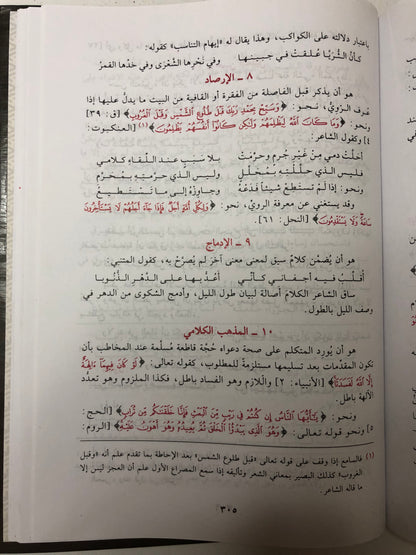 باعتبار دلالته على الكواكب، وهذا يقال له «إيهام التناسب» كقوله:
كأنَّ الثُّريّا عُلقَتْ في جَبينها وفي نَحْرِها الشِّعْرَى وفي خَدِّها القمرُ
٨ ـ الإرصاد
هو أن يذكر قبل الفاصلة من الفقرة أو القافية من البيت ما يدلُّ عليها إذا
عُرِف الرَّويُّ، نحو: ﴿وَسَبِّحْ بِحَمْدِ رَبِّكَ قَبْلَ طُلُوعِ الشَّمْسِ وَقَبْلَ الْغُرُوبِ﴾ [ق: ٣٩]
ونحو: ﴿وَمَا كَانَ اللَّهُ لِيَظْلِمَهُمْ وَلَٰكِن كَانُوا أَنفُسَهُمْ يَظْلِمُونَ﴾(١) [العنكبوت:
٤] وكقول الشاعر:
أحَلَّتْ دمي مِنْ غَيْرِ جُرمٍ وحرَّمتْ بلا سَببٍ عند اللِّقاءِ كلامي
فليسَ الذي حلَّلتِهِ بِمُحلَّلٍ وليسَ الذي حرَّمتِهِ بِمُحرَّمِ
ونحو: إذا لَمْ تستَطعْ شيئاً فَدَعْهُ وجاوِزْهُ إلى ما تَسْتَطيعُ
وقد يستغني عن معرفة الرويّ، نحو: ﴿وَلِكُلِّ أُمَّةٍ أَجَلٌ فَإِذَا جَاءَ أَجَلُهُمْ لَا يَسْتَأْخِرُونَ
سَاعَةً وَلَا يَسْتَقْدِمُونَ﴾ [النحل: ٦١].
٩ ـ الإدماج
هو أن يُضْمَن كلامٌ سيق لمعنى معنى آخر لم يُصرَّحْ به، كقول المتنبي:
أُقلِّبُ فيه أجفاني كأنِّي أعُدُّ بها على الدَّهْرِ الذُّنوبا
ساق الشاعر الكلامَ أصالة لبيان طول الليل، وأدمج الشكوى من الدهر في
وصف الليل بالطول.
١٠ ـ المذهب الكلامي
هو أن يُورِد المتكلم على صحة دعواه حُجَّة قاطعة مُسلَّمة عند المخاطب بأن
تكون المقدِّمات بعد تسليمها مستلزمة للمطلوب، كقوله تعالى: ﴿لَوْ كَانَ فِيهِمَا آلِهَةٌ
إِلَّا اللَّهُ لَفَسَدَتَا﴾ [الأنبياء: ٢٢] واللّازم وهو الفساد باطل، فكذا الملزوم وهو تعدُّد
الآلهة باطل.
ونحو: ﴿يَا أَيُّهَا النَّاسُ إِن كُنتُمْ فِي رَيْبٍ مِّنَ الْبَعْثِ فَإِنَّا خَلَقْنَاكُم مِّن تُرَابٍ﴾ [الحج:
٥] ونحو قوله تعالى: ﴿وَهُوَ الَّذِي يَبْدَؤُا الْخَلْقَ ثُمَّ يُعِيدُهُ وَهُوَ أَهْوَنُ عَلَيْهِ﴾ [الروم:
(١) فالسامع إذا وقف على قوله تعالى «قبل طلوع الشمس» بعد الإحاطة بما تقدم علم أنه «وقبل
الغروب» كذلك البصير بمعاني الشعر وتأليفه إذا سمع المصراع الأول علم أن العجز ليس إلا
ما قاله الشاعر.
٣٠٥